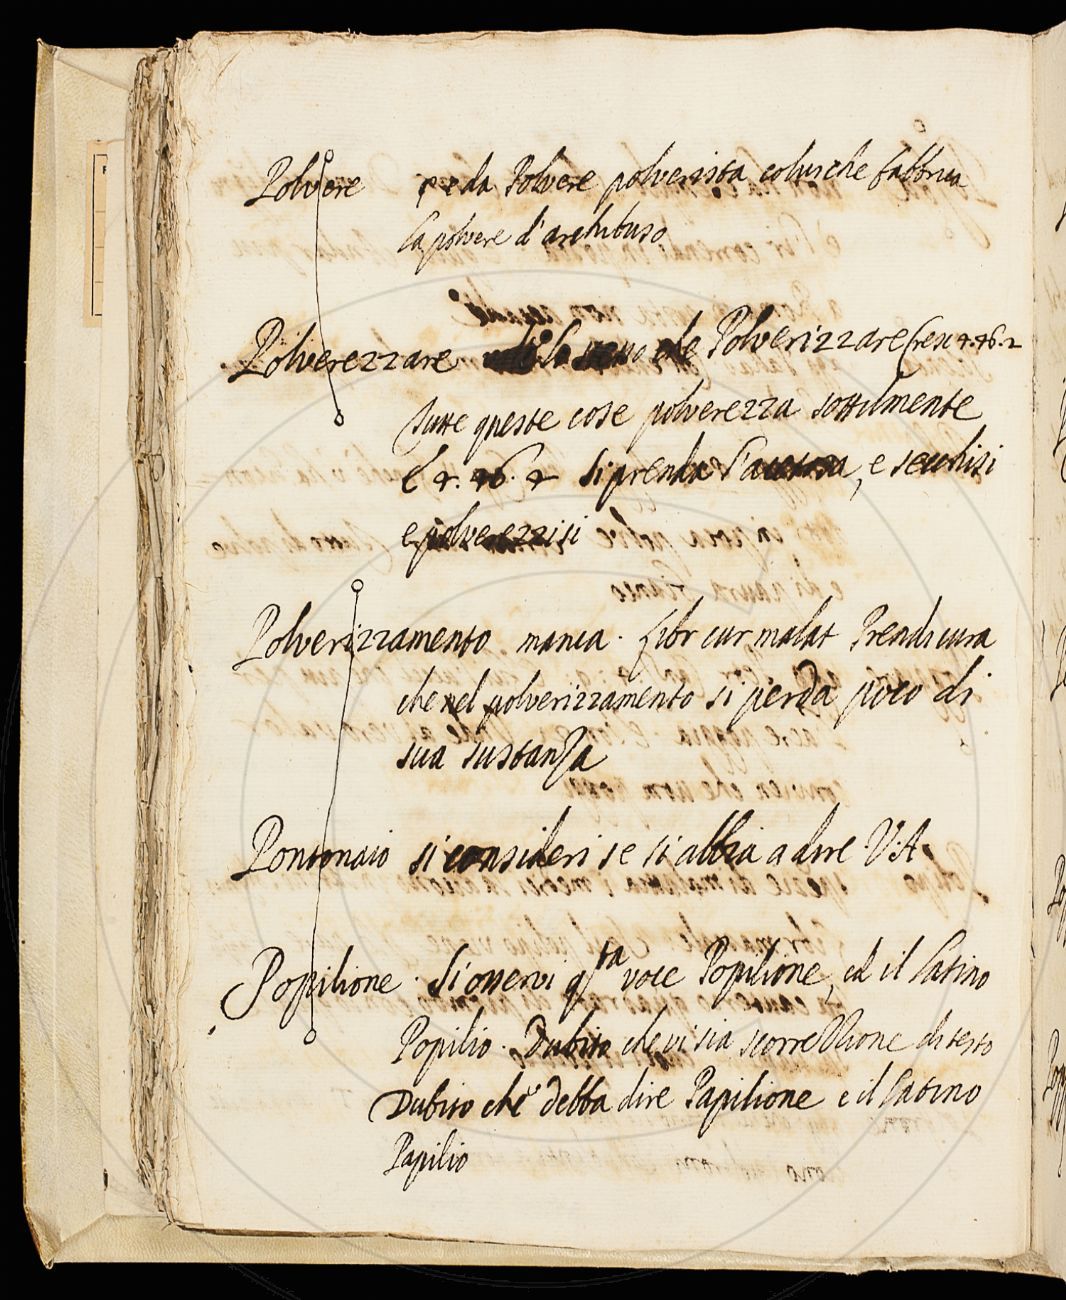 Polvere e da Polvere polverista colui che fabbrica
la polvere d'archibuso
Polverezzare Polverizzare Cresc 4.46.2
Tutte queste cose polverezza sottilmente
E 4. 46. 4 Si prenda l'acetosa, e secchisi
e polverezzisi
Polverizzamento manca. Libr cur malat Prendi cura
che nel polverizzamento si perda poco di
sua sustanza
Pontonaio si consideri se si abbia a dire V: A
Popilione. Si osservi qsta voce Popilione, ed il Latino
Popilio. Dubito che vi sia scorrezzione di testo
Dubito che debba dire Papilione e il Latino
Papilio